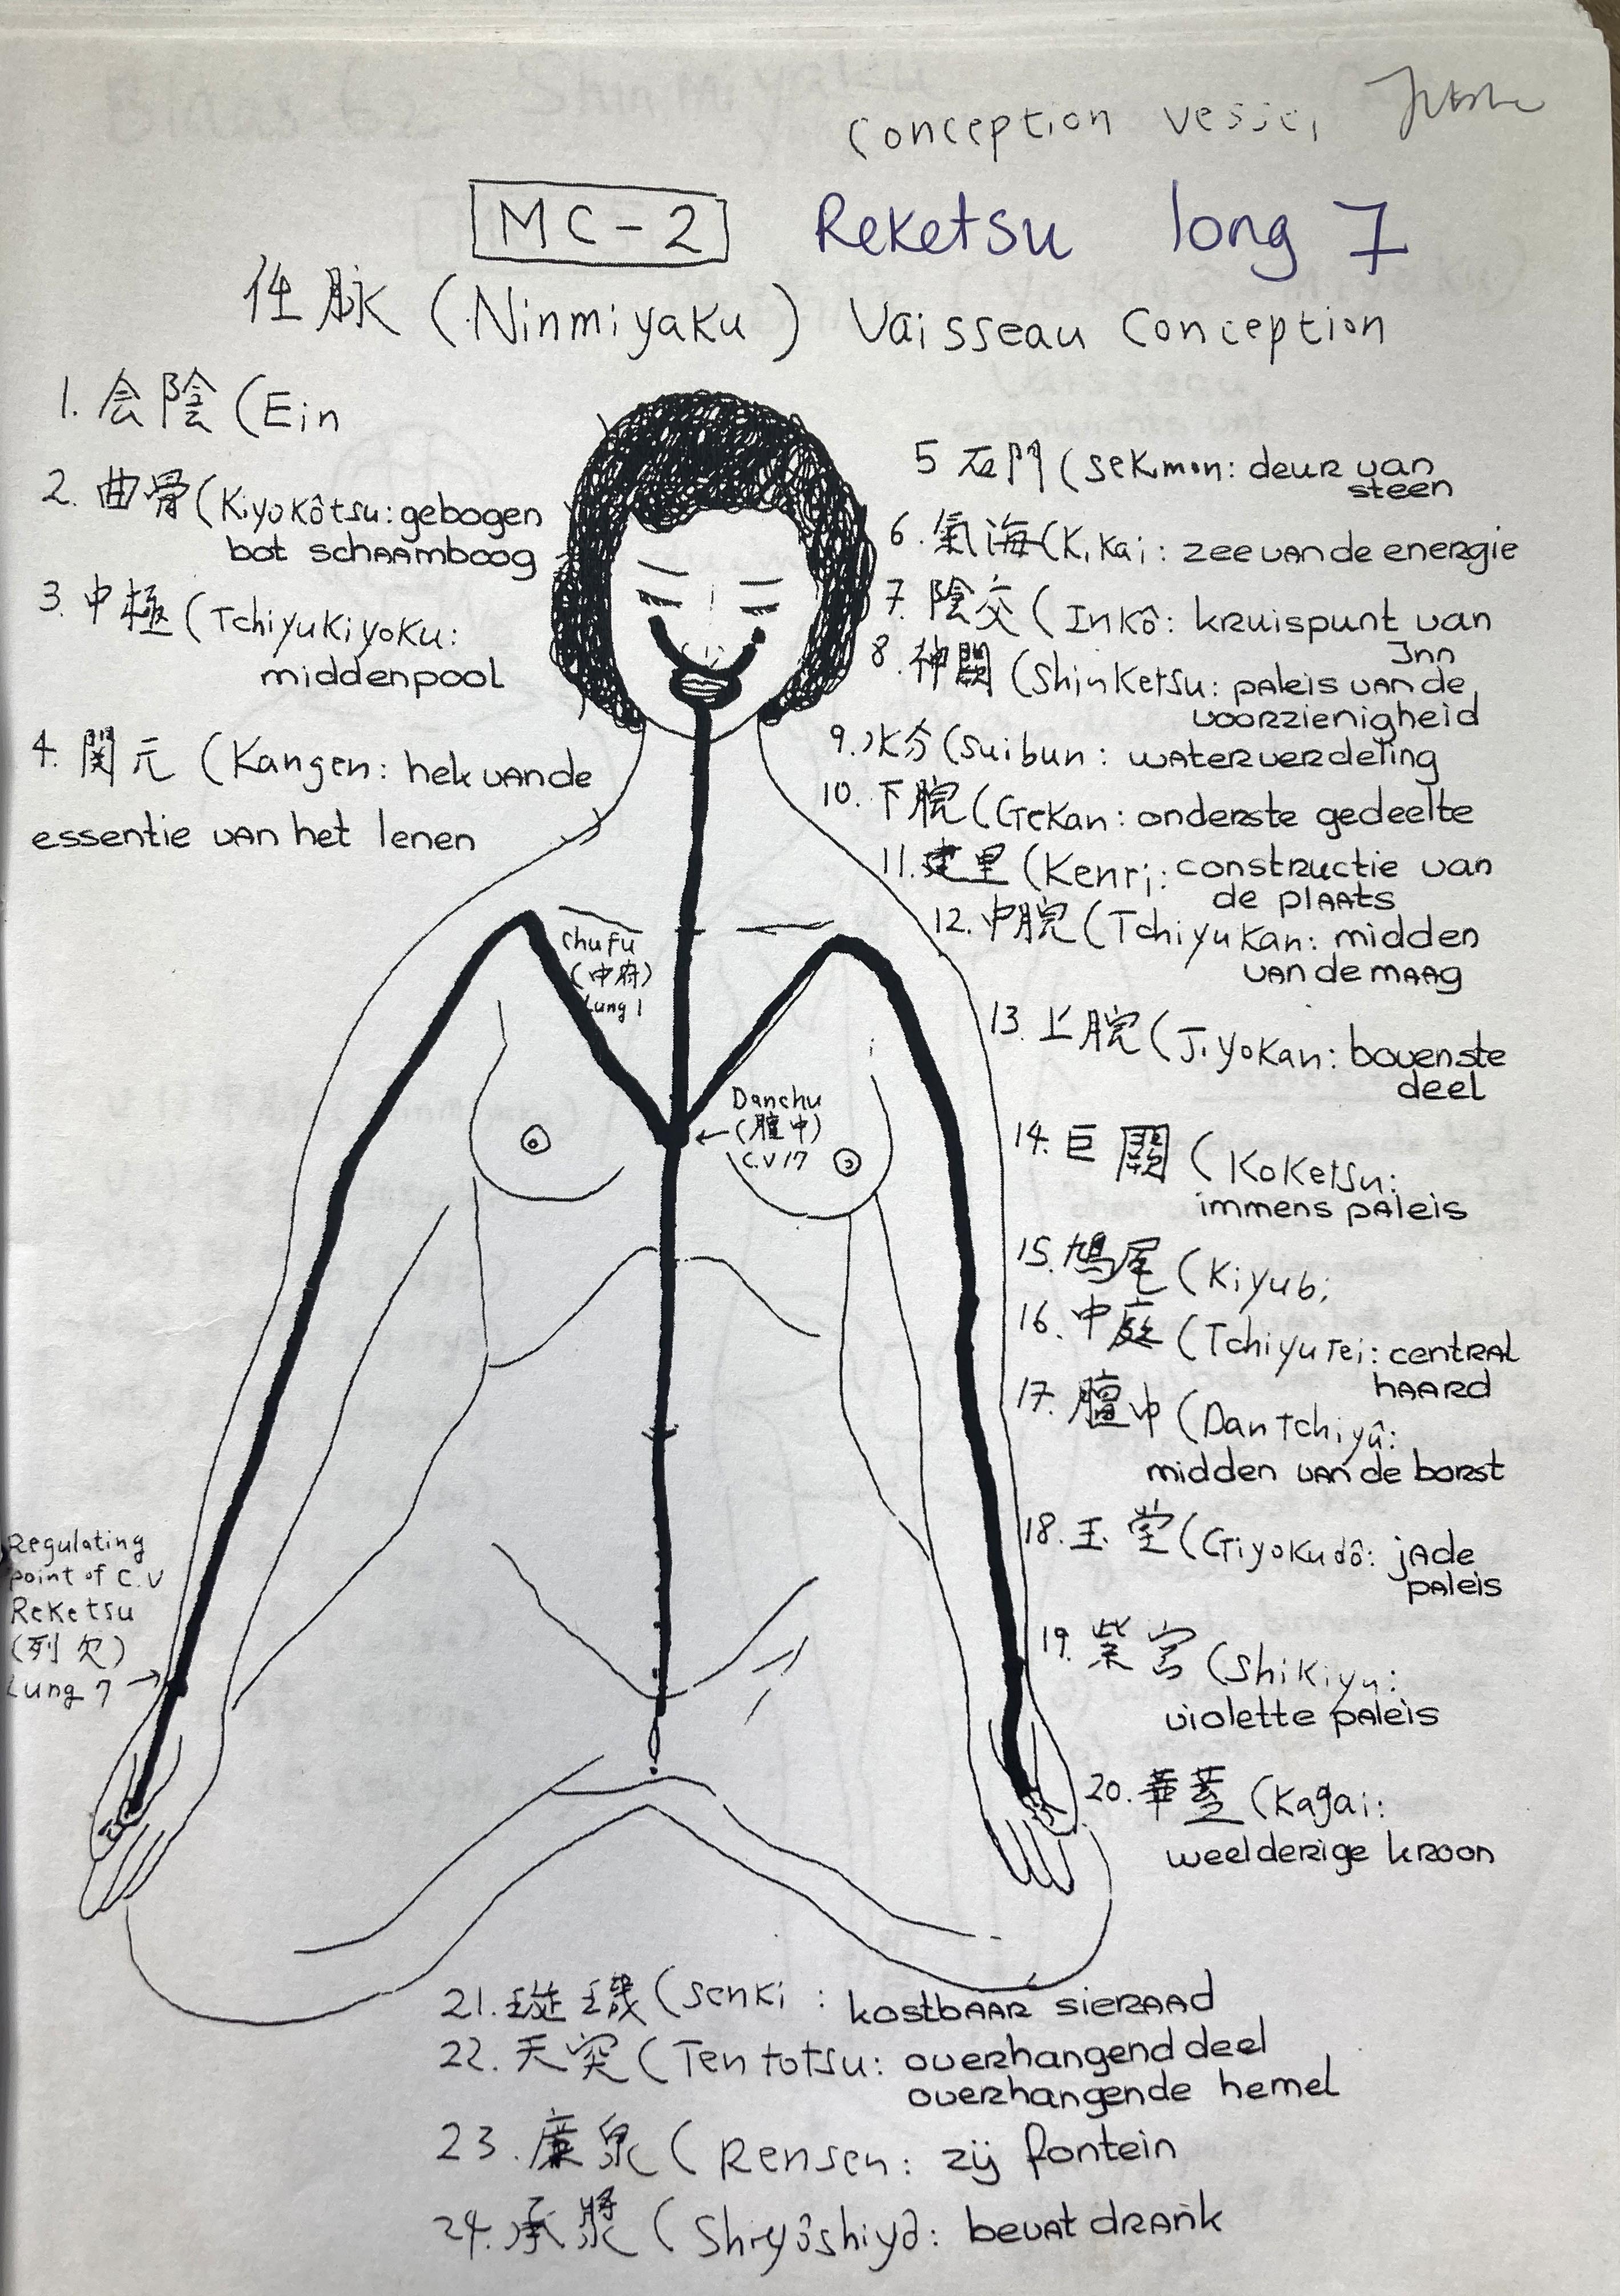 Conception vessel
MC-2
Reketsu long 7
任脉 (Ninmiyaku) Vaisseau Conception
1. 会陰 (Ein
2. 曲骨 (Kiyokôtsu: gebogen
bot schaamboog
3. 中極 (Tchiyukiyoku:
middenpool
4. 関元 (Kangen: hek van de
essentie van het lenen
5 石門 (Sekimon: deur van
steen
6. 氣海 (Kikai: zee van de energie
7. 陰交 (Inkô: kruispunt van
Inn
8. 神闕 (Shinketsu: paleis van de
voorzienigheid
9. 水分 (Suibun: waterverdeling
10. 下脘 (Gekan: onderste gedeelte
11. 建里 (Kenri: constructie van
de plaats
12. 中脘 (Tchiyukan: midden
van de maag
13. 上脘 (Jiyokan: bovenste
deel
14. 巨闕 (Koketsu:
immens paleis
15. 鳩尾 (Kiyubi
16. 中庭 (Tchiyutei: central
haard
17. 膻中 (Dantchiyû:
midden van de borst
18. 玉堂 (Giyokudô: jade
paleis
19. 紫宮 (Shikiyu:
violette paleis
20. 華蓋 (Kagai:
weelderige kroon
21. 璇璣 (Senki: kostbaar sieraad
22. 天突 (Tentotsu: overhangend deel
overhangende hemel
23. 廉泉 (Rensen: zij fontein
24. 承漿 (Shiyôshiyô: bevat drank
Chufu
(中府)
Lung 1
Danchu
←(膻中)
C.V 17
Regulating
point of C.V
Reketsu
(列欠)
Lung 7 →